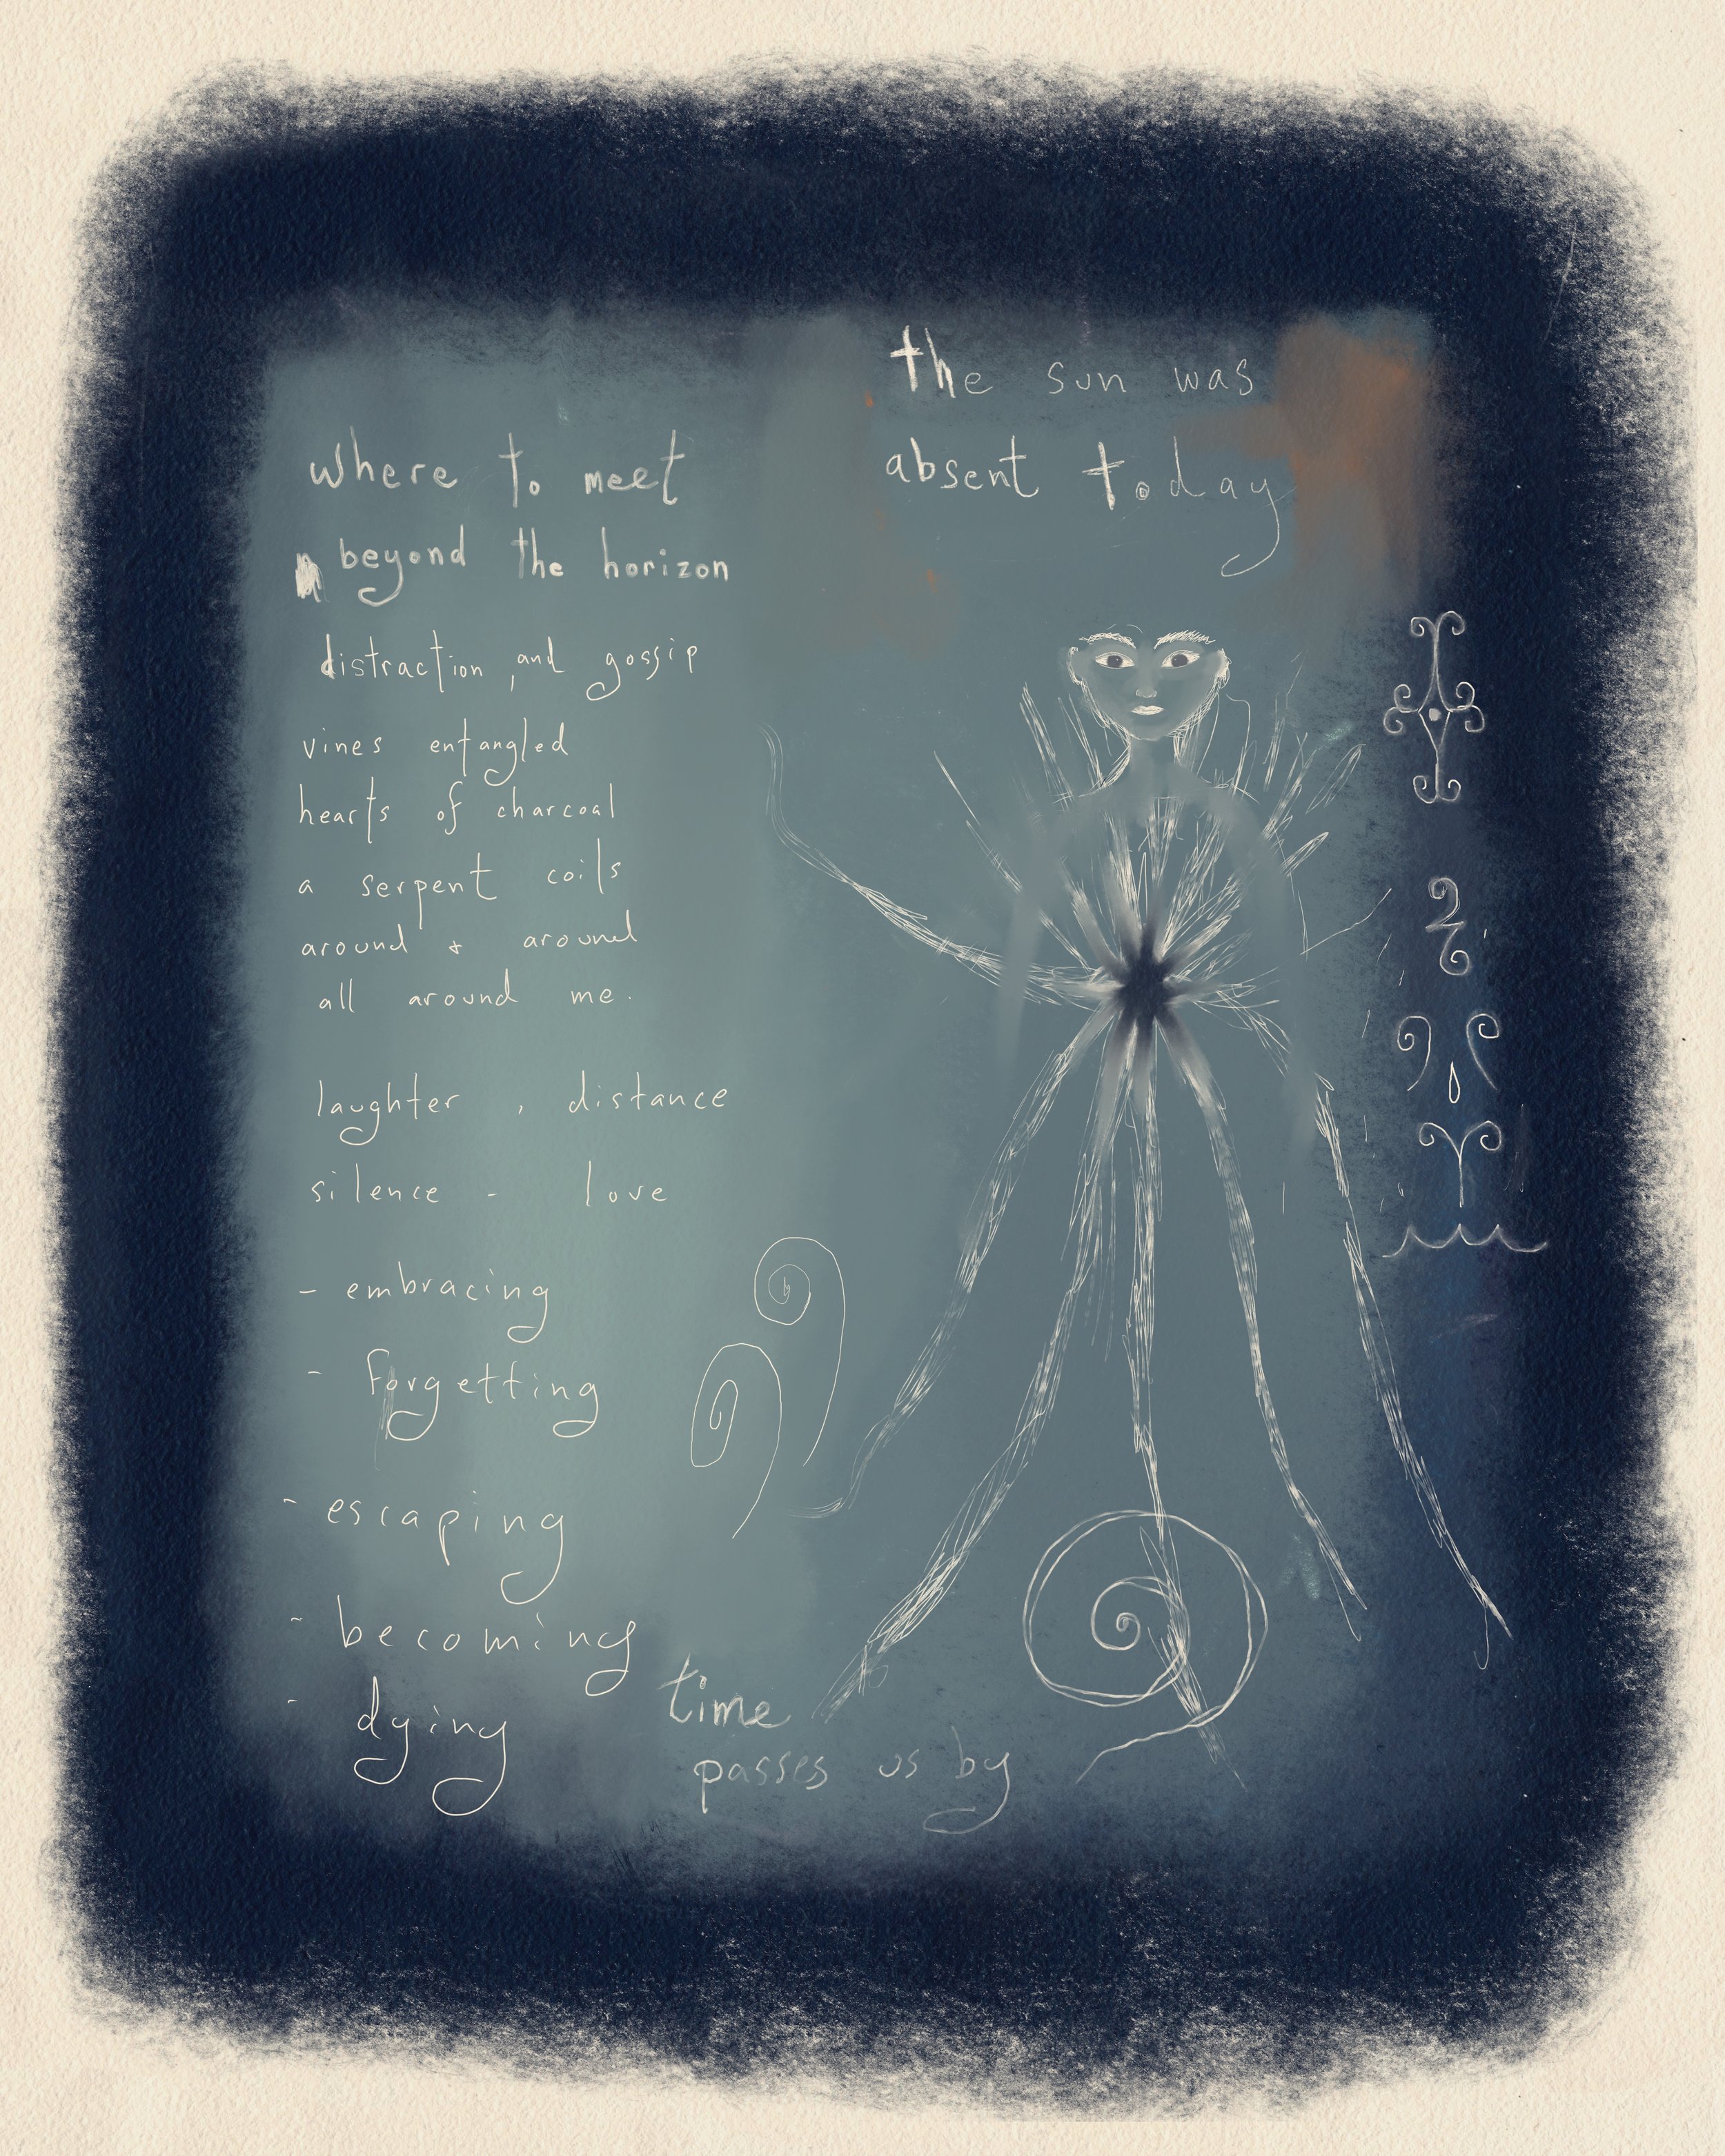 the sun was
absent today
where to meet
beyond the horizon
distraction, and gossip
vines entangled
hearts of charcoal
a serpent coils
around & around
all around me.
laughter, distance
silence - love
- embracing
- forgetting
- escaping
- becoming
- dying
time
passes us by